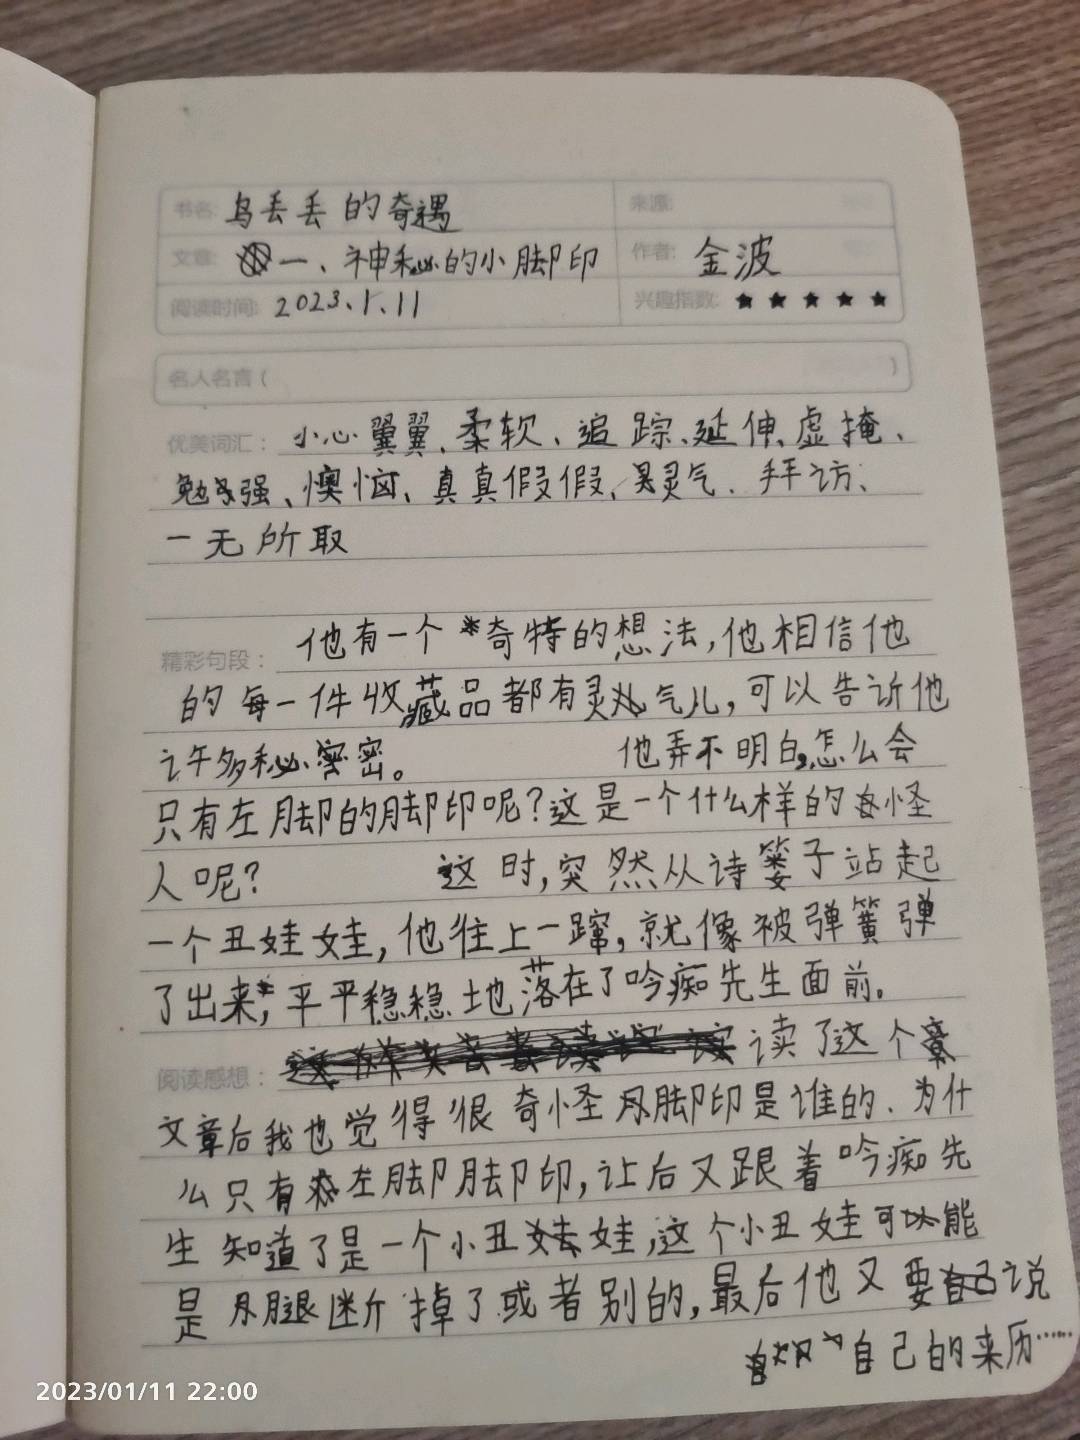 书名: 乌丢丢的奇遇 来源:
文章: 一、神秘的小脚印 作者: 金波
阅读时间: 2023.1.11 兴趣指数: ★★★★★
名人名言 ( )
优美词汇: 小心翼翼、柔软、追踪、延伸、虚掩、
勉强、懊恼、真真假假、灵气、拜访、
一无所取
精彩句段: 他有一个奇特的想法,他相信他
的每一件收藏品都有灵气儿,可以告诉他
许多秘密。 他弄不明白,怎么会
只有左脚的脚印呢?这是一个什么样的怪
人呢? 这时,突然从诗篓子站起
一个丑娃娃,他往上一蹿,就像被弹簧弹
了出来,平平稳稳地落在了吟痴先生面前。
阅读感想: 读了这个
文章后我也觉得很奇怪脚印是谁的、为什
么只有左脚脚印,让后又跟着吟痴先
生知道了是一个小丑娃娃,这个小丑娃可能
是腿断掉了或者别的,最后他又要说
自己的来历……
2023/01/11 22:00